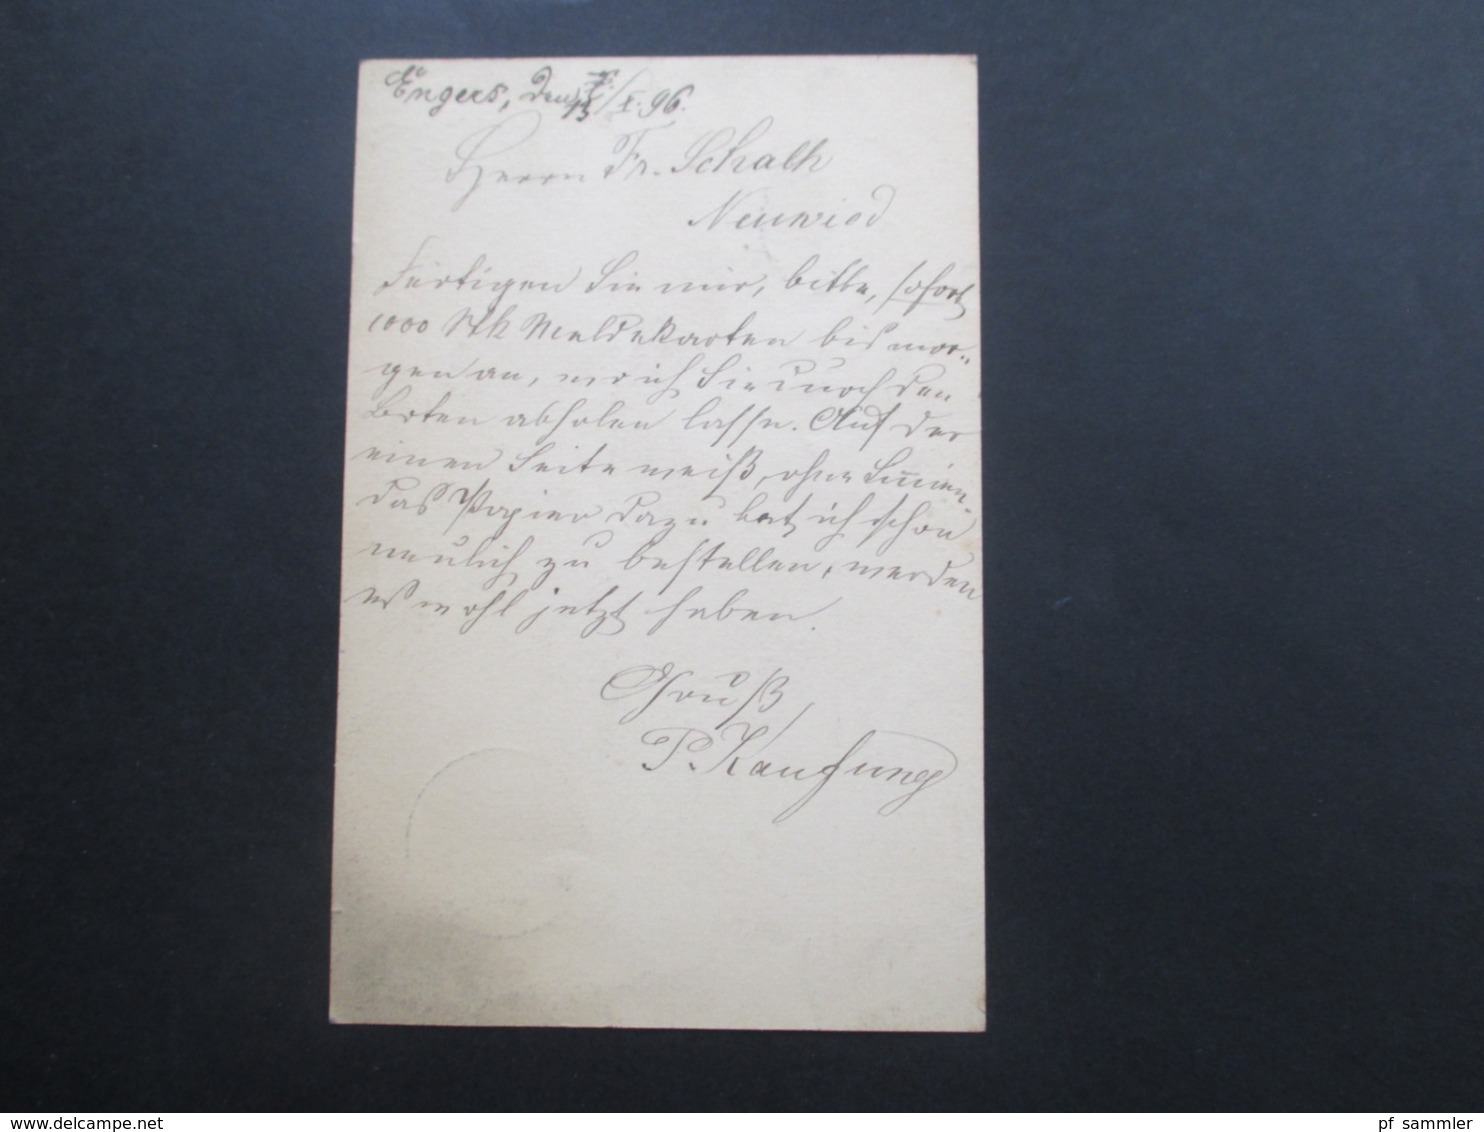 Engers, den 13/X. 96.
Herrn Fr. Schalk
Neuwied
Fertigen Sie mir, bitte, sofort
1000 Stk Meldekarten bis mor-
gen an, wo ich Sie durch den
Boten abholen lasse. Auf der
einen Seite weiß, ohne Linien.
das Papier dazu bat ich schon
neulich zu bestellen, werden
es wohl jetzt haben.
Gruß
P. Kaufung
www.delcampe.net
pf_sammler